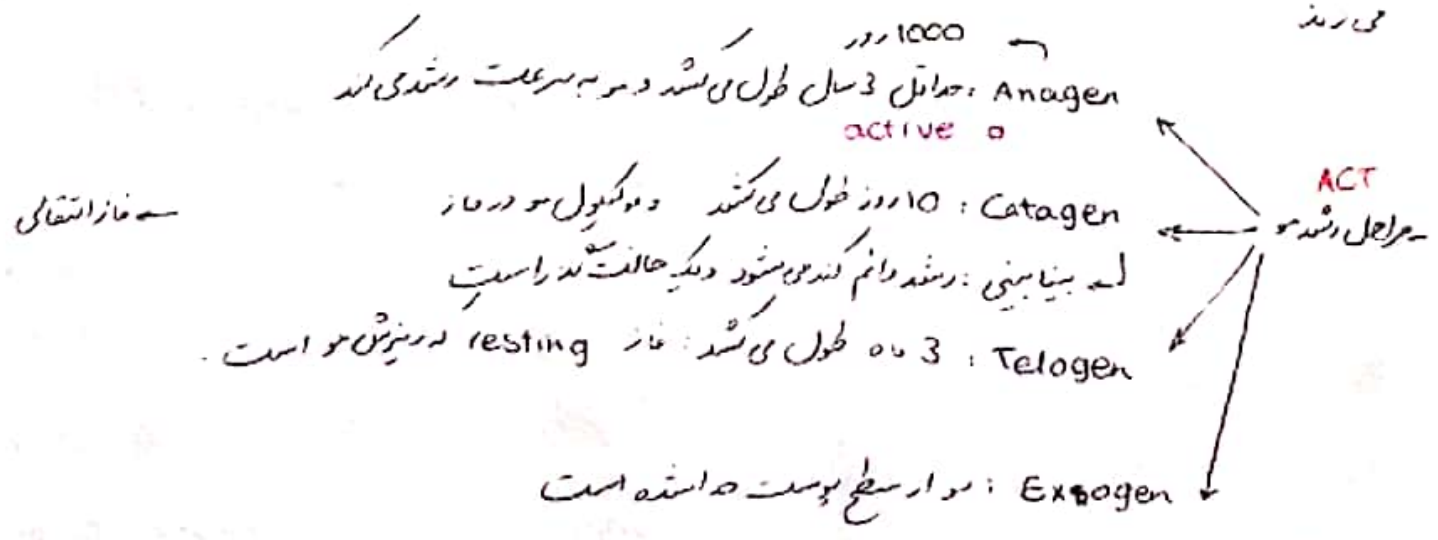 می ریزد
1000 روز
Anagen : حداقل 3 سال طول می کشد و مو به سرعت رشد می کند
active
ACT
مراحل رشد مو
Catagen : 10 روز طول می کشد و فولیکول مو در فاز
فاز انتقالی
بینابینی : رشد دائم کند می شود و یک حالت گذرا است
Telogen : 3 ماه طول می کشد : فاز resting و ریزش مو است .
Exogen : مو از سطح پوست جدا شده است